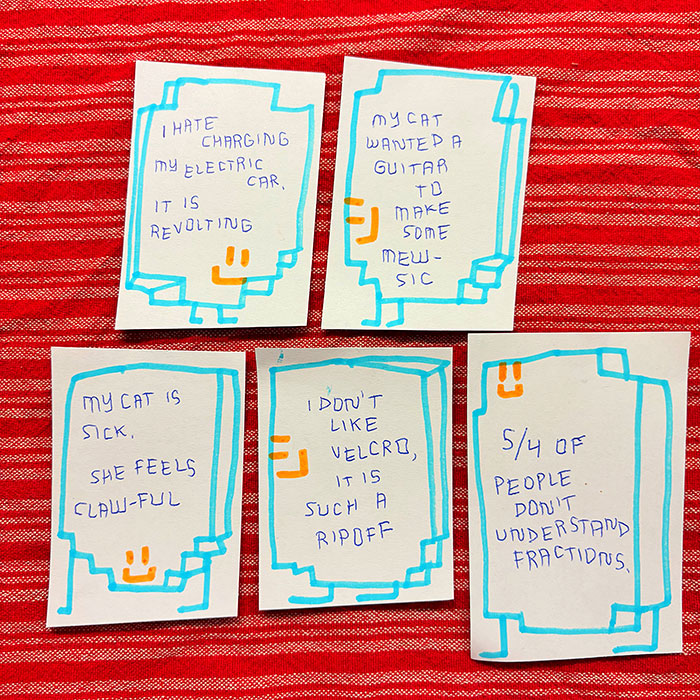 I HATE
CHARGING
MY ELECTRIC
CAR.
IT IS
REVOLTING
MY CAT
WANTED A
GUITAR
TO
MAKE
SOME
MEW-
SIC
MY CAT IS
SICK.
SHE FEELS
CLAW-FUL
I DON'T
LIKE
VELCRO,
IT IS
SUCH A
RIPOFF
5/4 OF
PEOPLE
DON'T
UNDERSTAND
FRACTIONS.